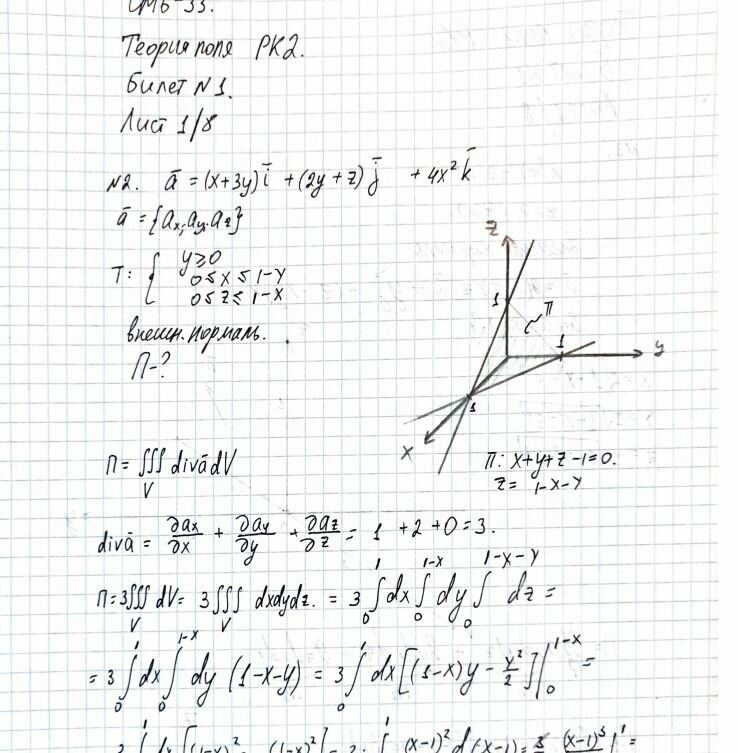 СМ6-33.
Теория поля РК2.
Билет N1.
Лист 1/8
N2. ā = (x+3y) ī + (2y+z) j̄ + 4x² k̄
ā = {ax; ay; az}
T: { y≥0
0≤x≤1-y
0≤z≤1-x
внешн. нормаль.
П-?
z
1
П
1
y
1
x
П = ∭ divā dV
V
П: x+y+z-1=0.
z = 1-x-y
divā = ∂ax/∂x + ∂ay/∂y + ∂az/∂z = 1 + 2 + 0 = 3.
П = 3∭ dV = 3∭ dxdydz. = 3 ∫₀¹ dx ∫₀^(1-x) dy ∫₀^(1-x-y) dz =
V V
= 3 ∫₀¹ dx ∫₀^(1-x) dy (1-x-y) = 3 ∫₀¹ dx [(1-x)y - y²/2] |₀^(1-x) =
(x-1)² d(x-1) = (x-1)³ |¹ =